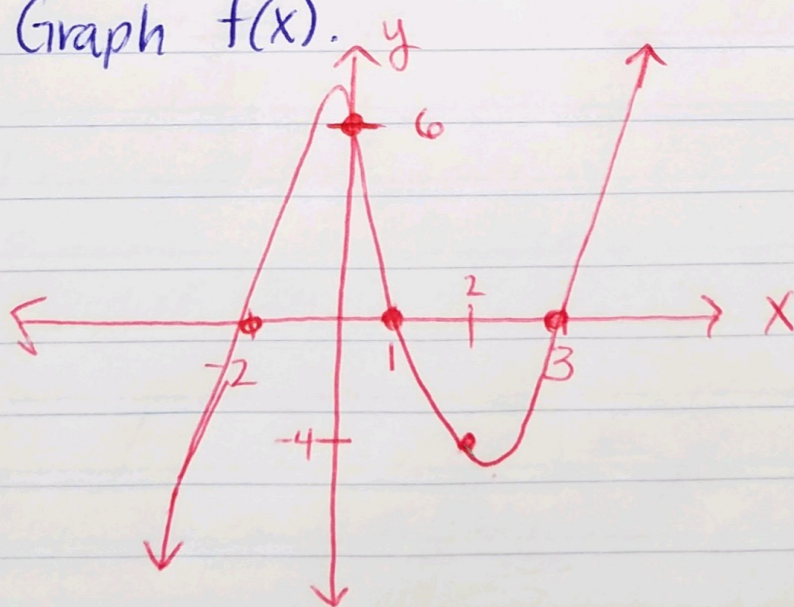 Graph f(x).
y
6
2
X
-2
1
3
-4